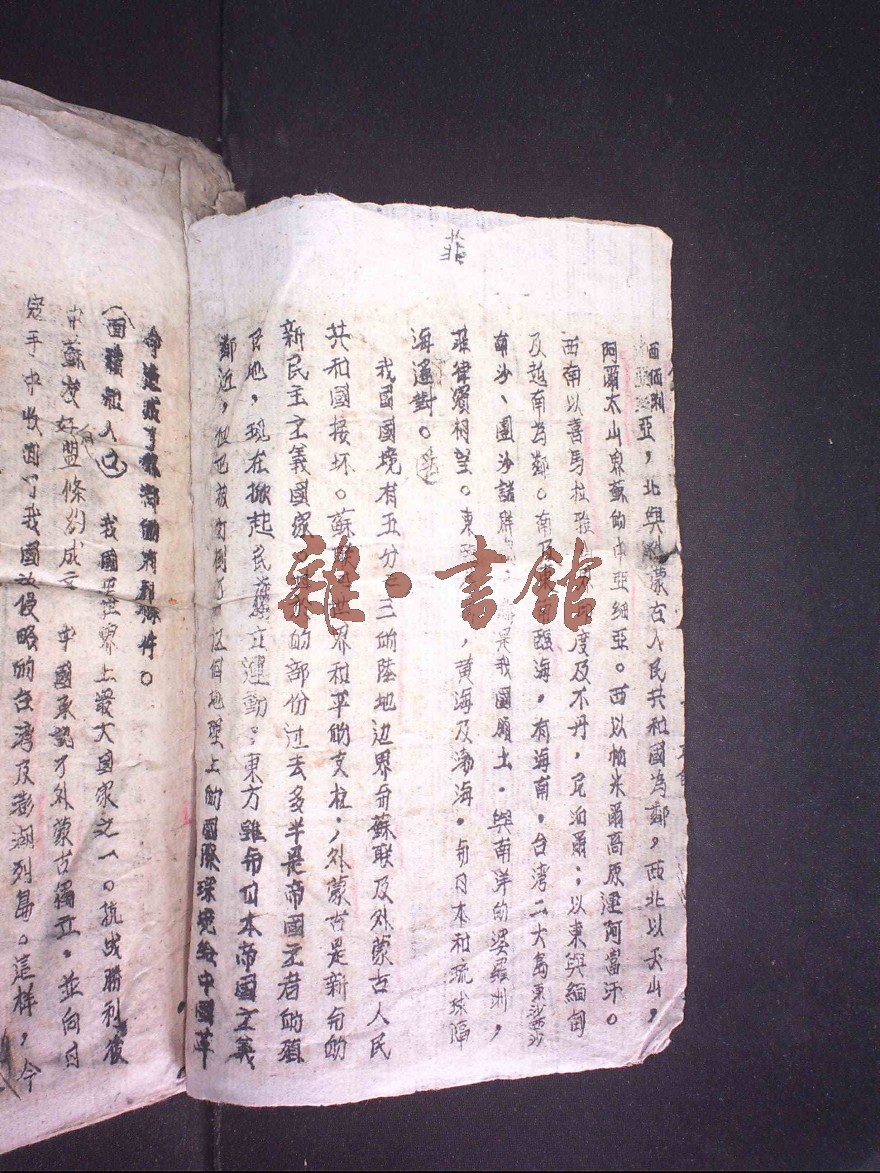 菲
西伯利亞，北與外蒙古人民共和國為鄰，西北以天山，
阿爾太山界蘇的中亞細亞。西以帕米爾高原連阿富汗。
西南以喜馬拉雅 印度及不丹，尼泊爾；以東與緬甸
及越南為鄰。南及東南臨海，有海南，台湾二大島東沙西沙
南沙、團沙諸群島，均是我國領土．與南洋的婆羅洲，
菲律濱相望。東 ，黃海及渤海．與日本和琉球隔
海遙對。
我國國境有五分之三的陸地边界与蘇联及外蒙古人民
共和國接坏。蘇联是世界和平的支柱，外蒙古是新的
新民主主義國家。其它的部份过去多半是帝國主者的殖
民地，現在掀起民族獨立運動；東方雖有日本帝國主義
鄰近，但已被打倒了這個地理上的國際環境給中國革
命造成了 的有利條件。
（面積和人口） 我國是世界上最大國家之一。抗战勝利後
中蘇友好盟條約成立 中國承認了外蒙古獨立．並向日
寇手中收回了我國被侵略的台湾及澎湖列島。這样，今
雜·書館